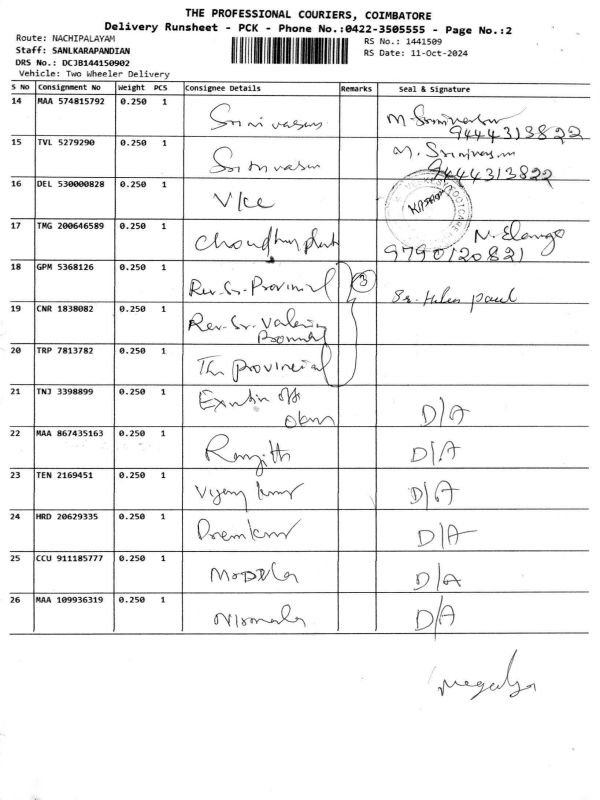 THE PROFESSIONAL COURIERS, COIMBATORE
Delivery Runsheet - PCK - Phone No.:0422-3505555 - Page No.:2
Route: NACHIPALAYAM
RS No.: 1441509
Staff: SANLKARAPANDIAN
RS Date: 11-Oct-2024
DRS No.: DCJB144150902
Vehicle: Two Wheeler Delivery
S No Consignment No Weight PCS Consignee Details Remarks Seal & Signature
14 MAA 574815792 0.250 1 Srinivasan M. Srinivasan
9444313822
15 TVL 5279290 0.250 1 Srinivasan M. Srinivasan
9444313822
16 DEL 530000828 0.250 1
17 TMG 200646589 0.250 1 N. Elango
9790120821
18 GPM 5368126 0.250 1 Rev. Sr. Provincial 3 Sr. Helen Paul
19 CNR 1838082 0.250 1 Rev. Sr.
20 TRP 7813782 0.250 1 The provincial
21 TNJ 3398899 0.250 1 D/A
22 MAA 867435163 0.250 1 Ranjith D/A
23 TEN 2169451 0.250 1 D/A
24 HRD 20629335 0.250 1 Premkumar D/A
25 CCU 911185777 0.250 1 D/A
26 MAA 109936319 0.250 1 Nirmala D/A